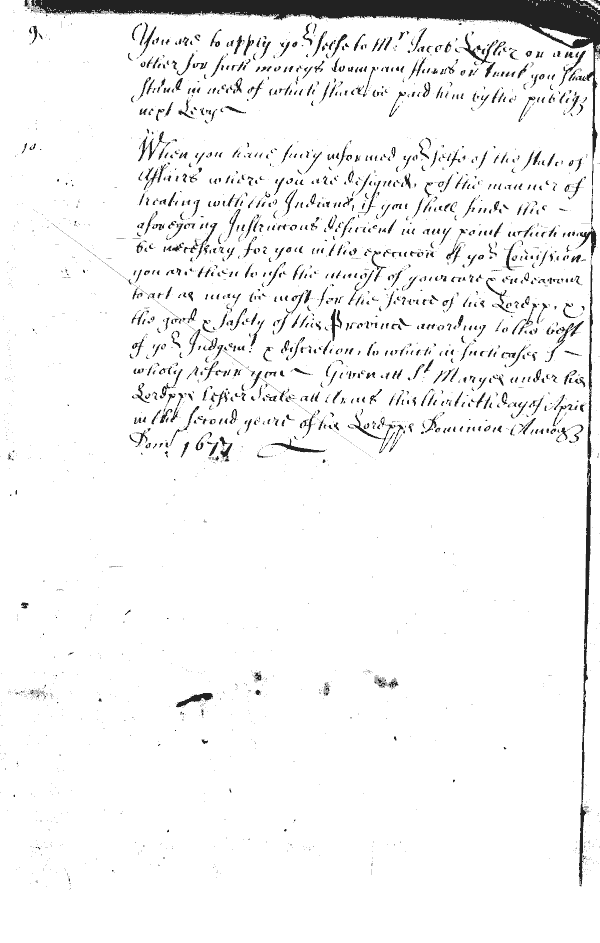 9 You are to apply yor. selfe to Mr. Jacob Leisler or any
other for such moneys wampam stuffs or truck you shall
stand in need of which shall be paid him by the publiq
next Levye
10 When you have fully informed yor. selfe of the state of
Affairs where you are designed, & of the manner of
treating with the Indians, if you shall finde the
aforegoing Instrucons deficient in any point which may
be necessary for you in the execucon of yor. Comission
you are then to use the utmost of your care & endeavour
to act as may be most for the service of his Lordpp, &,
the good & safety of this Province according to the best
of yor. Judgemt. & discretion, to which in such cases I
wholy referr you Given att St. Maryes under his
Lordpps lesser Seale att Armes this thirtieth day of April
in the second yeare of his Lordpps Dominion Annoq
Domi 1677